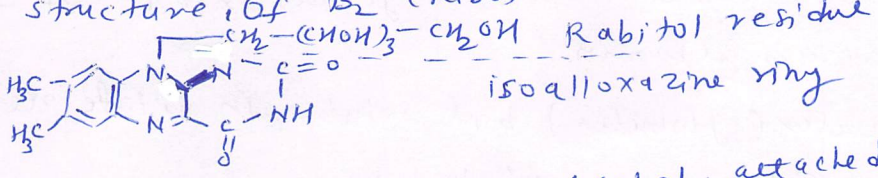 structure . Of B2
CH2-(CHOH)3-CH2OH Rabitol residue
H3C N N C=O
isoalloxazine ring
H3C N C NH
O
attached